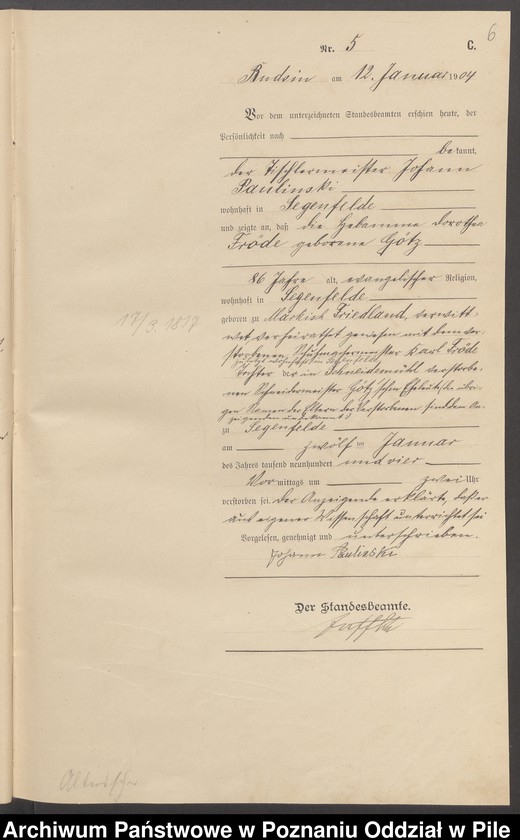 6
Nr. 5 C.
Rudsin am 12. Januar 1904
Vor dem unterzeichneten Standesbeamten erschien heute, der
Persönlichkeit nach
bekannt,
der Tischlermeister Johann
Paulinski
wohnhaft in Segenfelde
und zeigte an, daß die Hebamme Dorothea
Fröde geborene Götz
86 Jahre alt, evangelischer Religion,
wohnhaft in Segenfelde
17/3. 1817
geboren zu Märkisch Friedland, verwitt-
wet verheirathet gewesen mit dem ver-
storbenen, Karl Fröde
zuletzt wohnhaft in Segenfelde
Tochter der in Schneidemühl verstorbe-
nen Schneidermeister Götz'schen Eheleute, die übri-
gen Namen der Eltern der Verstorbenen sind dem An-
zeigenden unbekannt
zu Segenfelde
am zwölften Januar
des Jahres tausend neunhundert und vier
Vormittags um zwei Uhr
verstorben sei. Der Anzeigende erklärte, daß er
aus eigener Wissenschaft unterrichtet sei
Vorgelesen, genehmigt und unterschrieben.
Johann Paulinski
Der Standesbeamte.
Archiwum Państwowe w Poznaniu Oddział w Pile